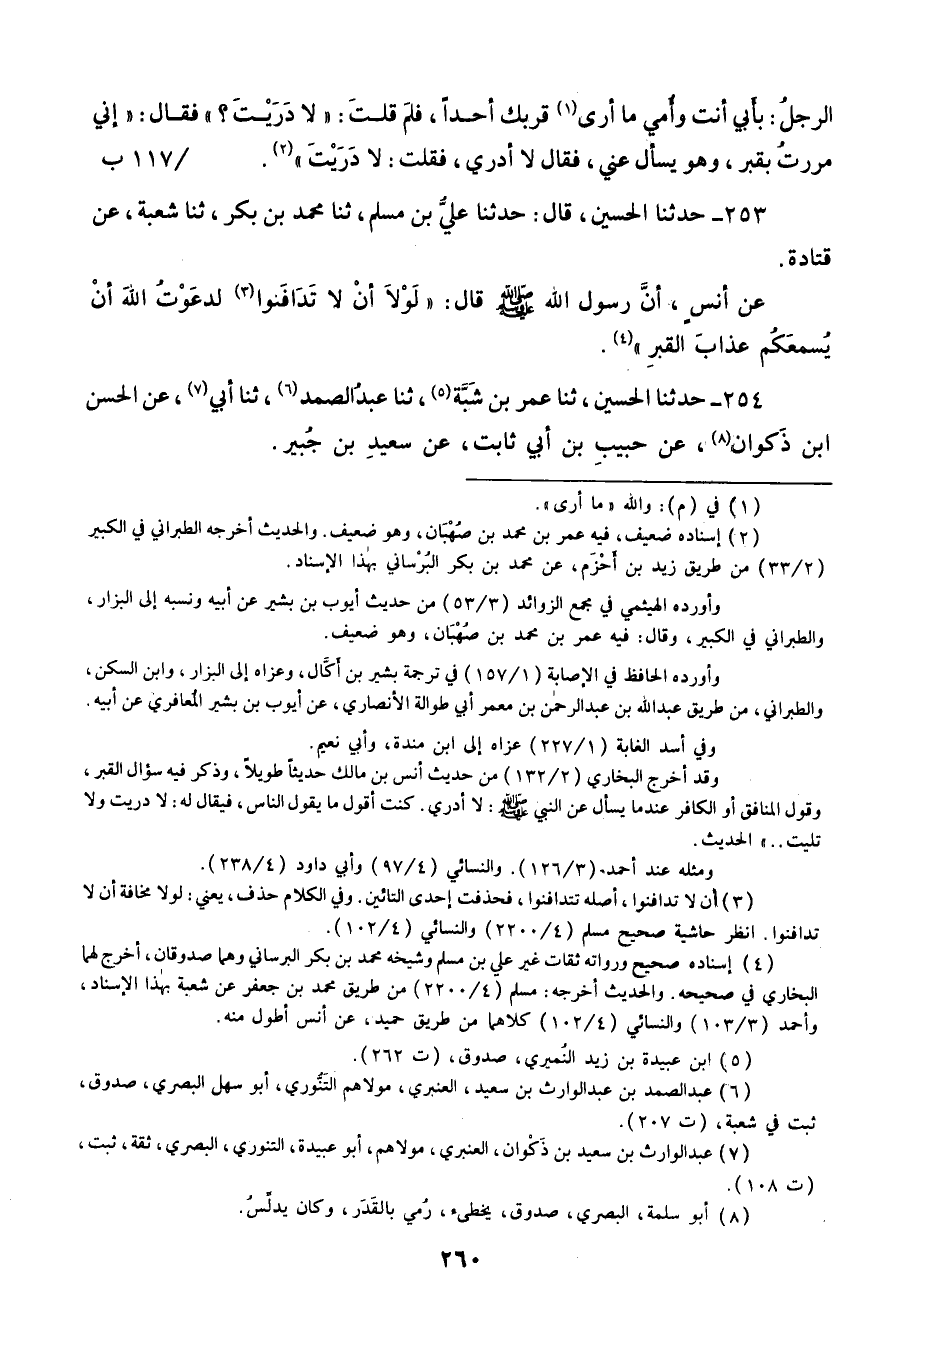 الرجلُ: بأَبي أنت وأُمي ما أرى(١) قربك أحـداً، فلمَ قلـتَ: « لا دَرَيْـتَ؟ » فقـال: « إني
مررتُ بقبر، وهو يسأل عني، فقال لا أدري، فقلت: لا دَرَيْتَ »(٢). /١١٧ ب
٢٥٣ـ حدثنا الحسين، قال: حدثنا عليُّ بن مسلم، ثنا محمد بن بكر، ثنا شعبة، عن
قتادة.
عن أنسٍ، أنَّ رسول الله ﷺ قال: « لَوْلاَ أنْ لا تَدَافَنوا(٣) لدعَوْتُ اللهَ أنْ
يُسمعَكُم عذابَ القبرِ »(٤).
٢٥٤ـ حدثنا الحسين، ثنا عمر بن شَبَّة(٥)، ثنا عبدُالصمد(٦)، ثنا أبي(٧)، عن الحسن
ابن ذَكوان(٨)، عن حبيبِ بن أبي ثابت، عن سعيدِ بن جُبير.
(١) في (م): والله « ما أرى».
(٢) إسناده ضعيف، فيه عمر بن محمد بن صُهْبَان، وهو ضعيف. والحديث أخرجه الطبراني في الكبير
(٣٣/٢) من طريق زيد بن أَخْزَم، عن محمد بن بكر البُرْساني بهٰذا الإسناد.
وأورده الهيثمي في مجمع الزوائد (٥٣/٣) من حديث أيوب بن بشير عن أبيه ونسبه إلى البزار،
والطبراني في الكبير، وقال: فيه عمر بن محمد بن صُهْبَان، وهو ضعيف.
وأورده الحافظ في الإصابة (١٥٧/١) في ترجمة بشير بن أَكَّال، وعزاه إلى البزار، وابن السكن،
والطبراني، من طريق عبدالله بن عبدالرحمٰن بن معمر أبي طوالة الأنصاري، عن أيوب بن بشير المُعافري عن أبيه.
وفي أسد الغابة (٢٢٧/١) عزاه إلى ابن مندة، وأبي نعيم.
وقد أخرج البخاري (١٣٢/٢) من حديث أنس بن مالك حديثاً طويلاً، وذكر فيه سؤال القبر،
وقول المنافق أو الكافر عندما يسأل عن النبي ﷺ: لا أدري. كنت أقول ما يقول الناس، فيقال له: لا دريت ولا
تليت..» الحديث.
ومثله عند أحمد (١٢٦/٣). والنسائي (٩٧/٤) وأبي داود (٢٣٨/٤).
(٣) أن لا تدافنوا، أصله تتدافنوا، فحذفت إحدى التائين. وفي الكلام حذف، يعني: لولا مخافة أن لا
تدافنوا. انظر حاشية صحيح مسلم (٢٢٠٠/٤) والنسائي (١٠٢/٤).
(٤) إسناده صحيح ورواته ثقات غير علي بن مسلم وشيخه محمد بن بكر البرساني وهما صدوقان، أخرج لهما
البخاري في صحيحه. والحديث أخرجه: مسلم (٢٢٠٠/٤) من طريق محمد بن جعفر عن شعبة بهٰذا الإسناد،
وأحمد (١٠٣/٣) والنسائي (١٠٢/٤) كلاهما من طريق حميد، عن أنس أطول منه.
(٥) ابن عبيدة بن زيد النُميري، صدوق، (ت ٢٦٢).
(٦) عبدالصمد بن عبدالوارث بن سعيد، العنبري، مولاهم التَنُّوري، أبو سهل البصري، صدوق،
ثبت في شعبة، (ت ٢٠٧).
(٧) عبدالوارث بن سعيد بن ذَكْوان، العنبري، مولاهم، أبو عبيدة، التنوري، البصري، ثقة، ثبت،
(ت ١٠٨).
(٨) أبو سلمة، البصري، صدوق، يخطىء، رُمي بالقَدَر، وكان يدلّسُ.
٢٦٠